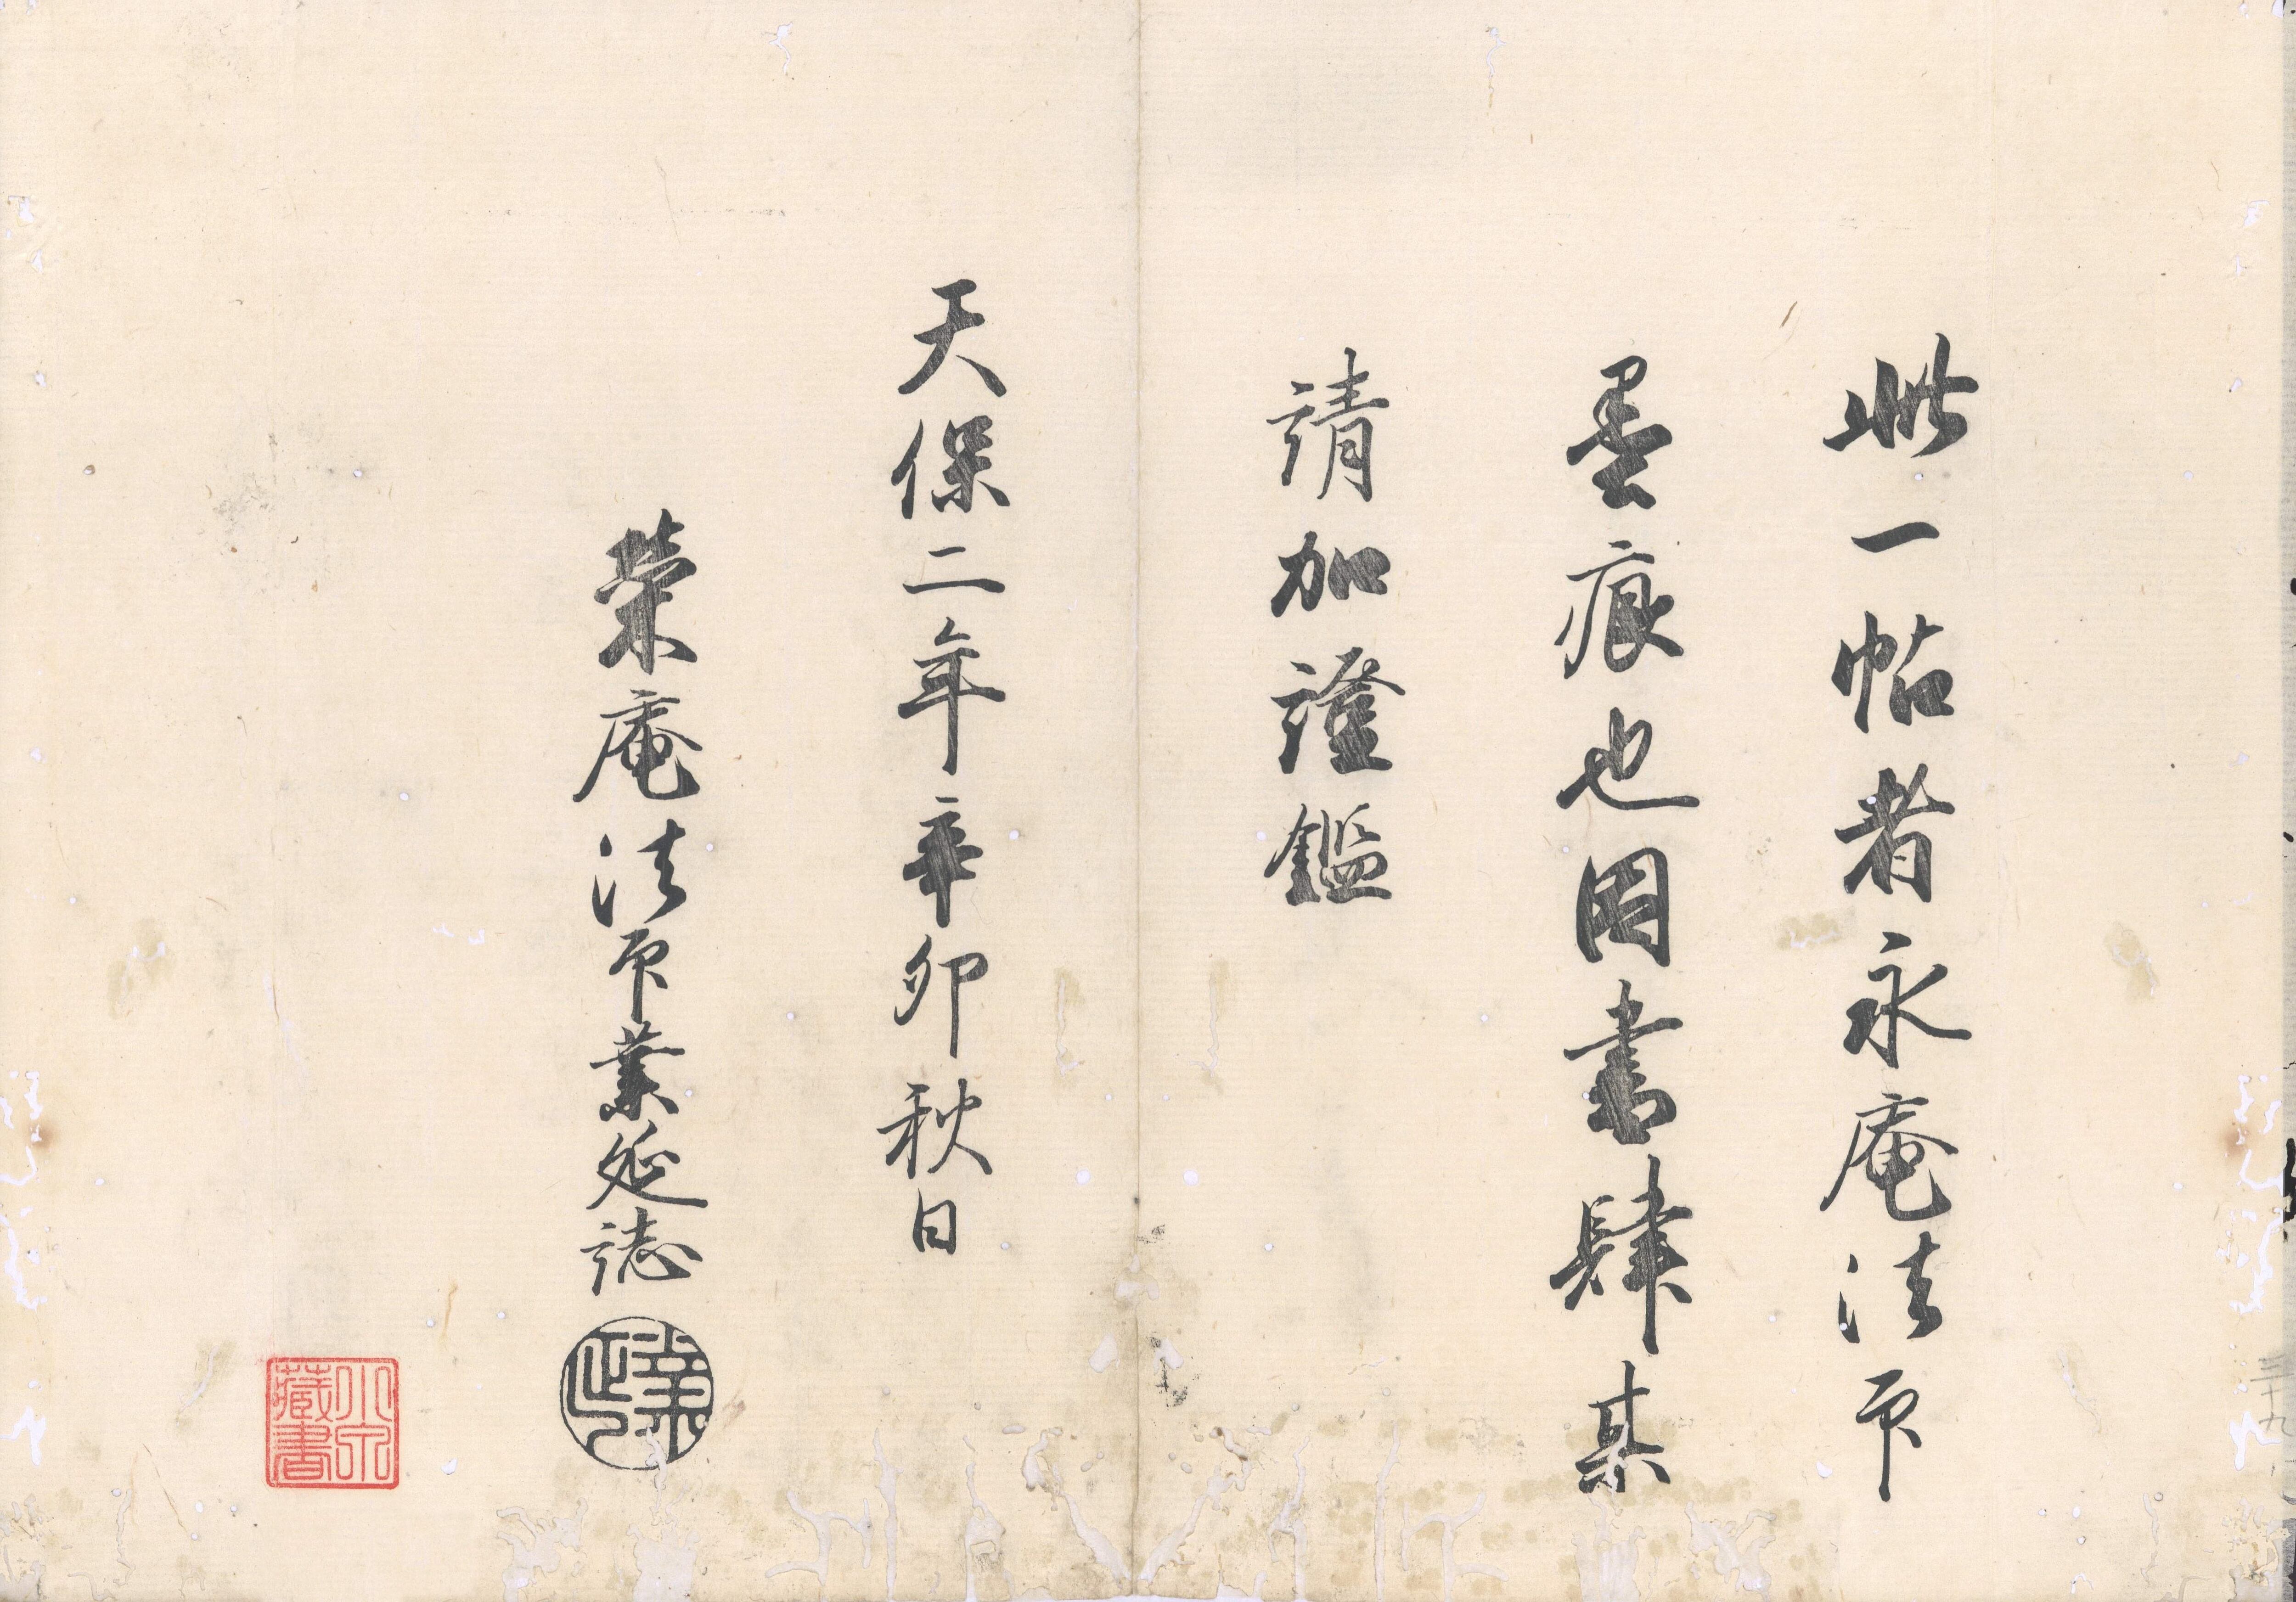 此一帖者永庵法印
墨痕也因書肆某
請加證鑑
天保二年辛卯秋日
榮庵法印業延誌
業延
藏書